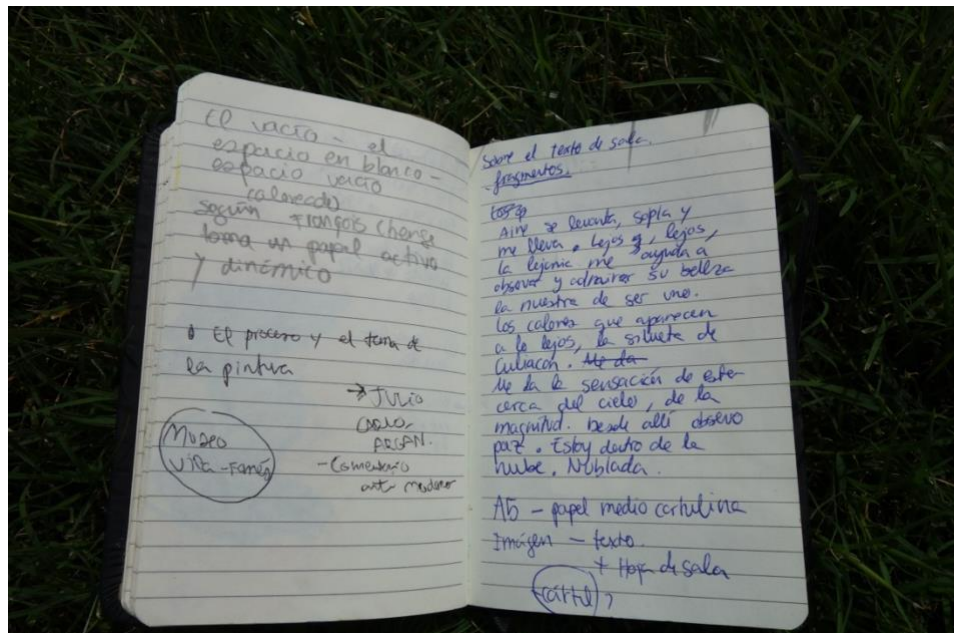 El vacío - el
espacio en blanco -
espacio vacío
(coloreado)
según François Cheng
toma un papel activo
y dinámico
El proceso y el tema de
la pintura
→ Julio
CARLO,
ARGAN.
- Comentario
arte moderno
Museo
Vila-Famés
Sobre el texto de sala.
fragmentos.
Aire se levanta, sopla y
me lleva. Lejos, lejos,
la lejanía me ayuda a
observar y admirar su belleza
la nuestra de ser uno.
los colores que aparecen
a lo lejos, la silueta de
Culiacán. Me da
Me da la sensación de estar
cerca del cielo, de la
magnitud. Desde allí observo
paz. Estoy dentro de la
nube. Nublada.
A5 - papel medio cartulina
Imágen - texto.
+ Hoja de sala